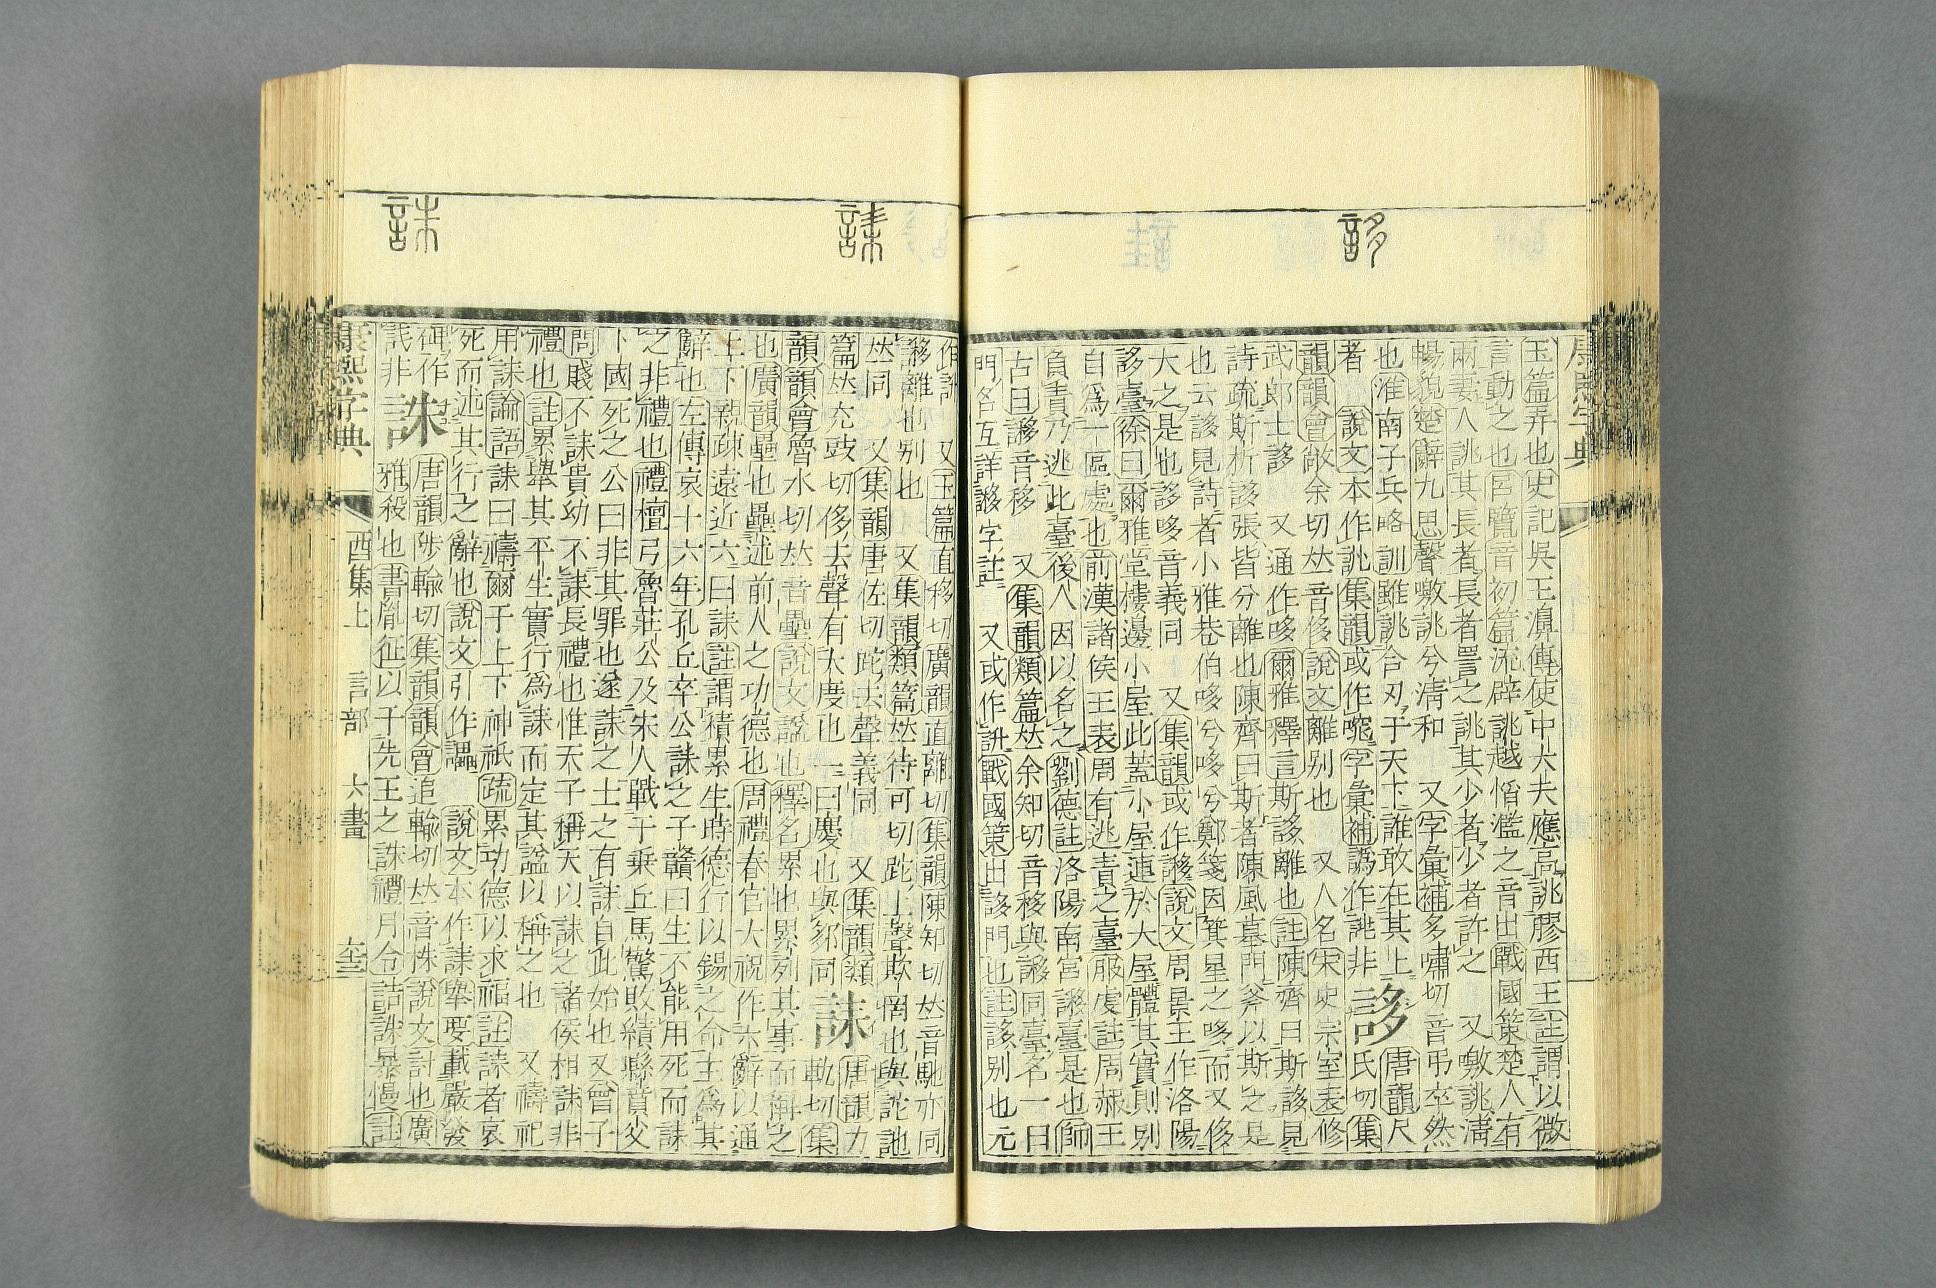 誃
玉篇弄也史記吳王濞傳使中大夫應高誂膠西王註謂以微
言動之也呂覽音初篇流辟誂越慆濫之音出戰國策楚人有
兩妻人誂其長者長者詈之誂其少者少者許之　又噭誂淸
暢貌楚辭九思聲噭誂兮淸和　又字彙補多嘯切音弔卒然
也淮南子兵略訓雖誂合刃于天下誰敢在其上
誃
唐韻尺
氏切集
者　說文本作誂集韻或作嚁字彙補譌作誂非
韻韻會敞尒切𠀤音侈說文離别也　又人名宋史宗室表修
武郞士誃　又通作哆爾雅釋言斯誃離也註陳齊曰斯誃見
詩疏斯析誃張皆分離也陳齊曰斯者陳風墓門斧以斯之是
也云誃見詩者小雅巷伯哆兮哆兮鄭箋因箕星之哆而又侈
大之是也誃哆音義同　又集韻或作謻說文周景王作洛陽
誃臺徐曰爾雅堂樓邊小屋此蓋小屋連於大屋體其實則别
自爲一區處也前漢諸侯王表周有逃責之臺服虔註周赧王
負責乃逃此臺後人因以名之劉德註洛陽南宮謻臺是也師
古曰謻音移　又集韻類篇𠀤余知切音移與謻同臺名一曰
門名互詳謻字註　又或作䚻戰國策出誃門也註誃别也元
誄
誅
作䚻　又玉篇直移切廣韻直離切集韻陳知切𠀤音馳亦同
謻離也别也　又集韻類篇𠀤待可切跎上聲欺罔也與詑訑
𠀤同　又集韻唐佐切跎去聲義同　又集韻類
篇𠀤充豉切侈去聲有大度也一曰慶也與䣊同
誄
唐韻力
軌切集
韻韻會魯水切𠀤音壘說文諡也釋名累也累列其事而稱之
也廣韻壘也壘述前人之功德也周禮春官大祝作六辭以通
上下親疎遠近六曰誄註謂積累生時德行以錫之命主爲其
辭也左傳哀十六年孔丘卒公誄之子贛曰生不能用死而誄
之非禮也禮檀弓魯莊公及宋人戰于乗丘馬驚敗績縣賁父
卜國死之公曰非其罪也遂誄之士之有誄自此始也又曾子
問賤不誄貴幼不誄長禮也惟天子稱天以誄之諸侯相誄非
禮也註累舉其平生實行爲誄而定其諡以稱之也　又禱祀
用誄論語誄曰禱爾于上下神祇疏累功德以求福註誄者哀
死而述其行之辭也說文引作讄　說文本作誄舉要載嚴發
碑作
誅
唐韻陟輸切集韻韻會追輸切𠀤音株說文討也廣
雅殺也書胤征以干先王之誅禮月令詰誅暴慢註
康熙字典　酉集上　言部　六畫　六十三